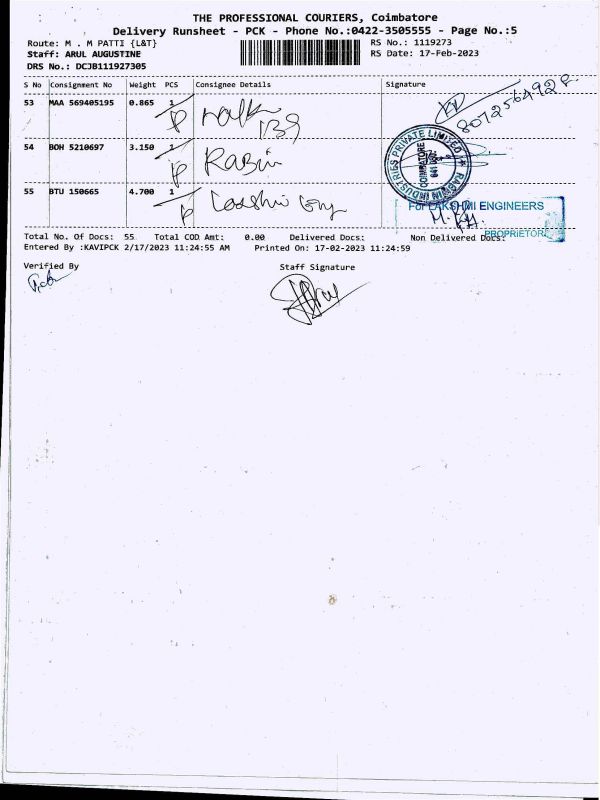 THE PROFESSIONAL COURIERS, Coimbatore
Delivery Runsheet - PCK - Phone No.:0422-3505555 - Page No.:5
Route: M . M PATTI {L&T}
RS No.: 1119273
Staff: ARUL AUGUSTINE
RS Date: 17-Feb-2023
DRS No.: DCJB111927305
S No Consignment No Weight PCS Consignee Details Signature
53 MAA 569405195 0.865 1
8072564928
54 BOH 5210697 3.150 1 Rabin
RABIN INDUSTRIES PRIVATE LIMITED
COIMBATORE
55 BTU 150665 4.700 1
For LAKSHMI ENGINEERS
PROPRIETOR
Total No. Of Docs: 55 Total COD Amt: 0.00 Delivered Docs: Non Delivered Docs:
Entered By :KAVIPCK 2/17/2023 11:24:55 AM Printed On: 17-02-2023 11:24:59
Verified By Staff Signature